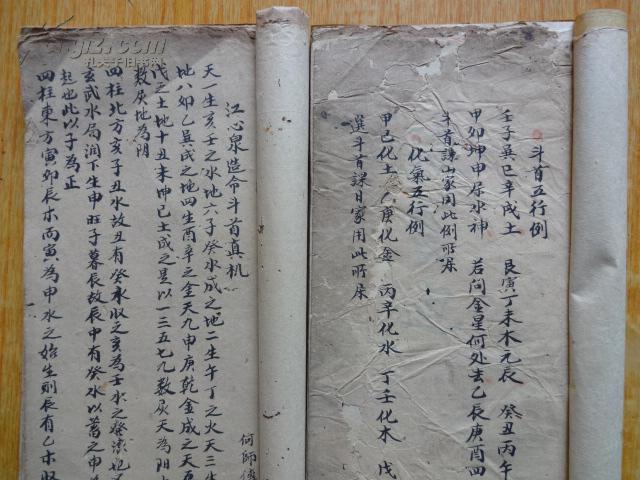 斗首五行例
壬子巽巳辛戌土　艮寅丁未木元辰　癸丑丙午
甲卯坤申属水神　若问金星何处去乙辰庚酉四
斗首课山家用此例所属
化氣五行例
甲己化土　乙庚化金　丙辛化水　丁壬化木　戊
選斗首課日家用此所属
何師傅
江心泉造命斗首真机
天一生亥壬之水地六子癸水成之地二生午丁之火天三生
地八卯乙巽成之地四生酉辛之金天九申庚乾金成之天五
戌之土地十丑未坤己土成之是以一三五七九数属天为阳
数属地为阴
四柱北方亥子丑水故丑有癸水収之亥为壬水之
玄武水局润下生申旺子暮辰故辰中有癸水以蓄之申
起也此以子为正
四柱東方寅卯辰木而寅为甲木之始生則辰有乙木収